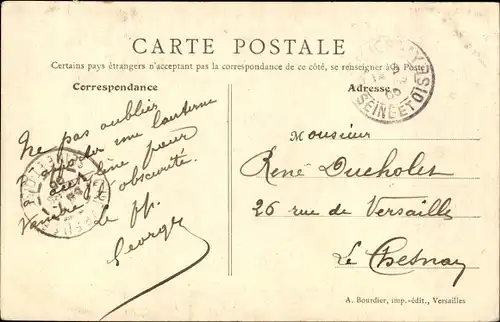 CARTE POSTALE
Certains pays étrangers n'acceptant pas la correspondance de ce côté, se renseigner à la Poste
Correspondance
Adresse
Ne pas oublier
apporter une lanterne
pour
l'obscurité.
Le
Georges
Monsieur
René Ducholet
26 rue de Versailles
Le Chesnay
SEINE ET OISE
A. Bourdier, imp.-édit., Versailles